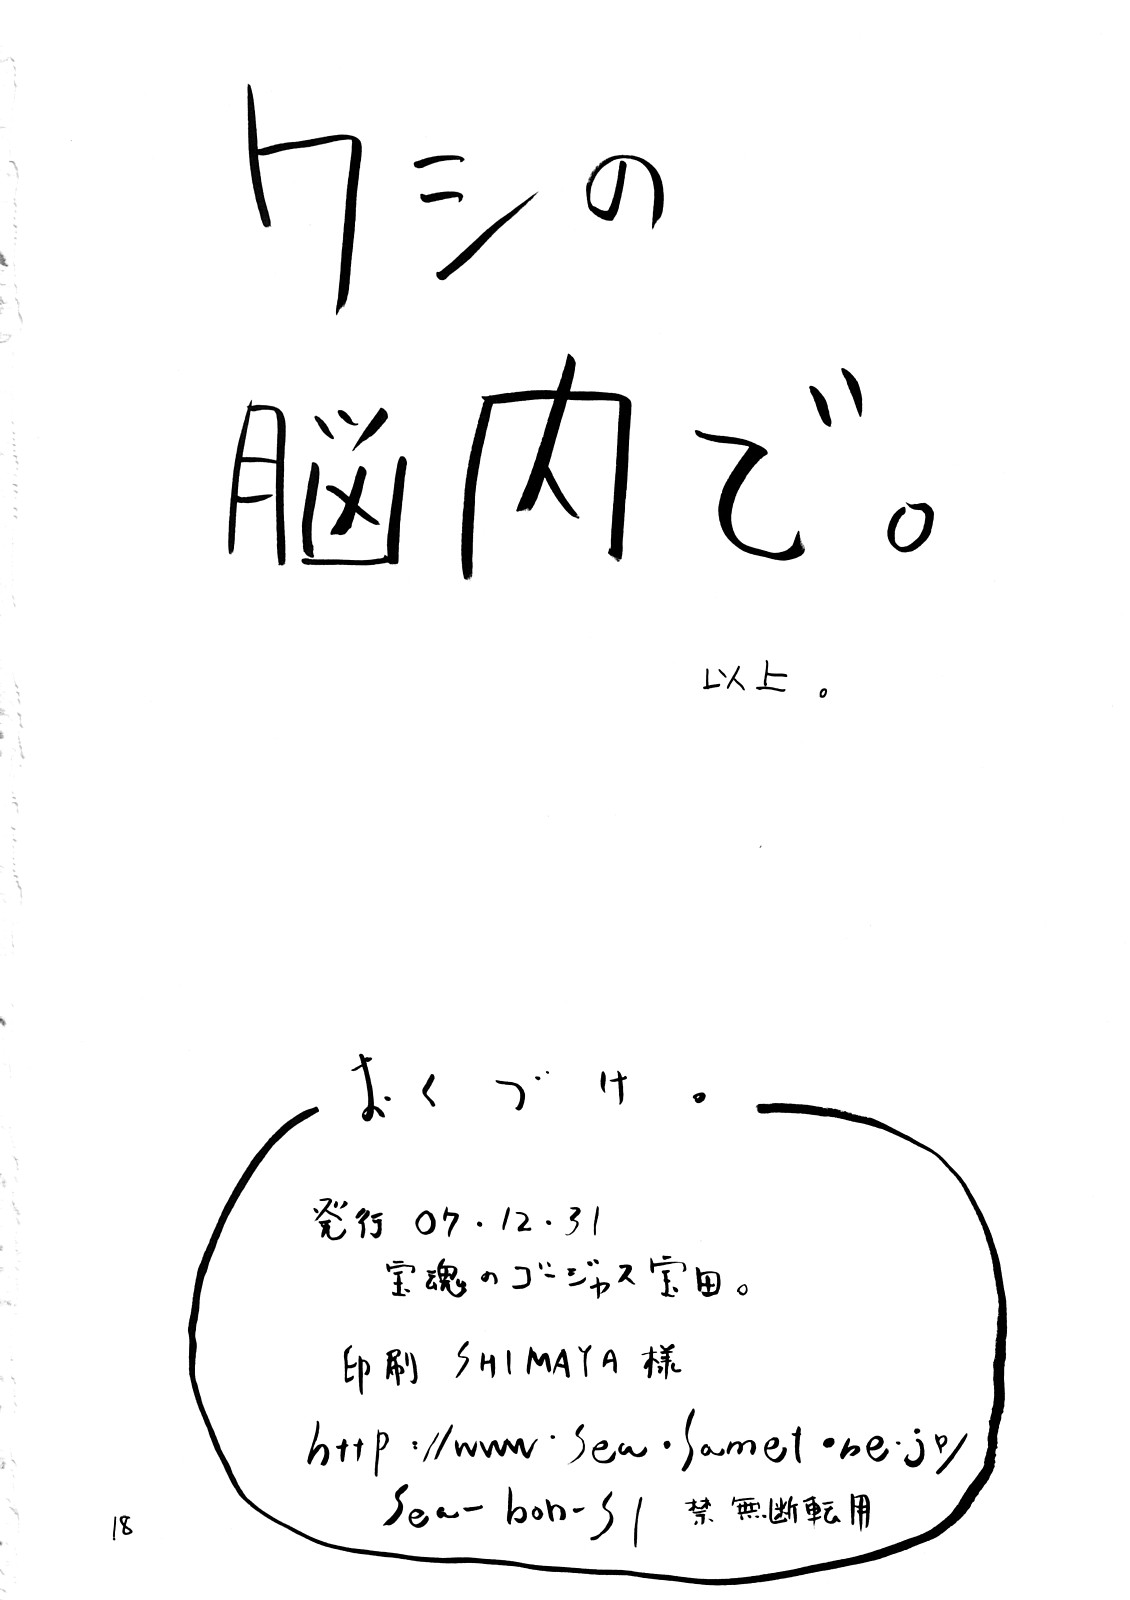 ワシの
脳内で。
以上。
おくづけ。
発行 07.12.31
宝魂のゴージャス宝田。
印刷 SHIMAYA様
http://www.sea.samet.ne.jp/
sea-bon-s/ 禁無断転用
18